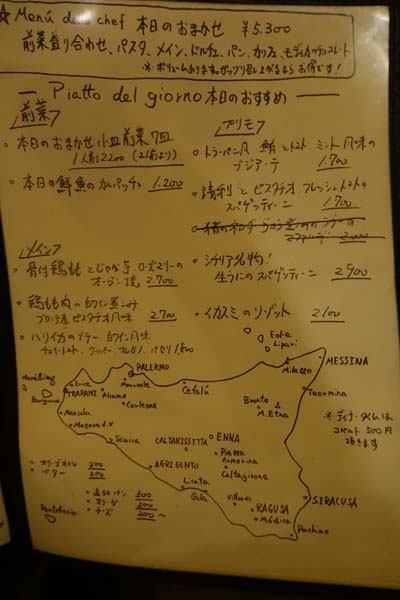 ☆ Menú dello chef 本日のおまかせ ¥5.300
前菜盛り合わせ、パスタ、メイン、ドルチェ、パン、カフェ、モディカのチョコレート
※ボリュームあります。ガッツリ召し上がるなら お得です!
Piatto del giorno 本日のおすすめ
前菜
・本日のおまかせ 小皿前菜 7皿
1人前2200 (2名より)
・本日の鮮魚のカルパッチョ 1.200
プリモ
・トラーパニ風 鮪とトマト、ミント風味の
ブジアーテ 1.700
・浅利とピスタチオ フレッシュトマトの
スパゲッティーニ 1.700
2.000
・シチリア名物!
生うにのスパゲッティーニ 2900
・イカスミのリゾット 2100
メイン
・骨付鶏ももとじゃが芋 ローズマリーの
オーブン焼 2.700
・鶏もも肉の白ワイン煮こみ
ブロンテ産ピスタチオ風味 2.700
・ハリイカのソテー 白ワイン風味
チェリートマト、ケッパー、オレガノ、パセリ 1,800
Eolie
Lipari
MESSINA
Milazzo
PALERMO
Monreale
Cefalù
Taormina
Erice
TRAPANI
Alcamo
Corleone
Bronte
M.Etna
Marsala
Mazara d.v
Sciacca
CALTANISSETTA
ENNA
Piazza
Armerina
AGRIGENTO
Caltagirone
Licata
Gela
Vittoria
RAGUSA
Módica
SIRACUSA
Pachino
Pantelleria
※ディナータイムは
コペルト 500円
頂きます
・オリーブオイル 200
・バター 200
・追加パン 300
・オリーブ 300
・チーズ 200〜